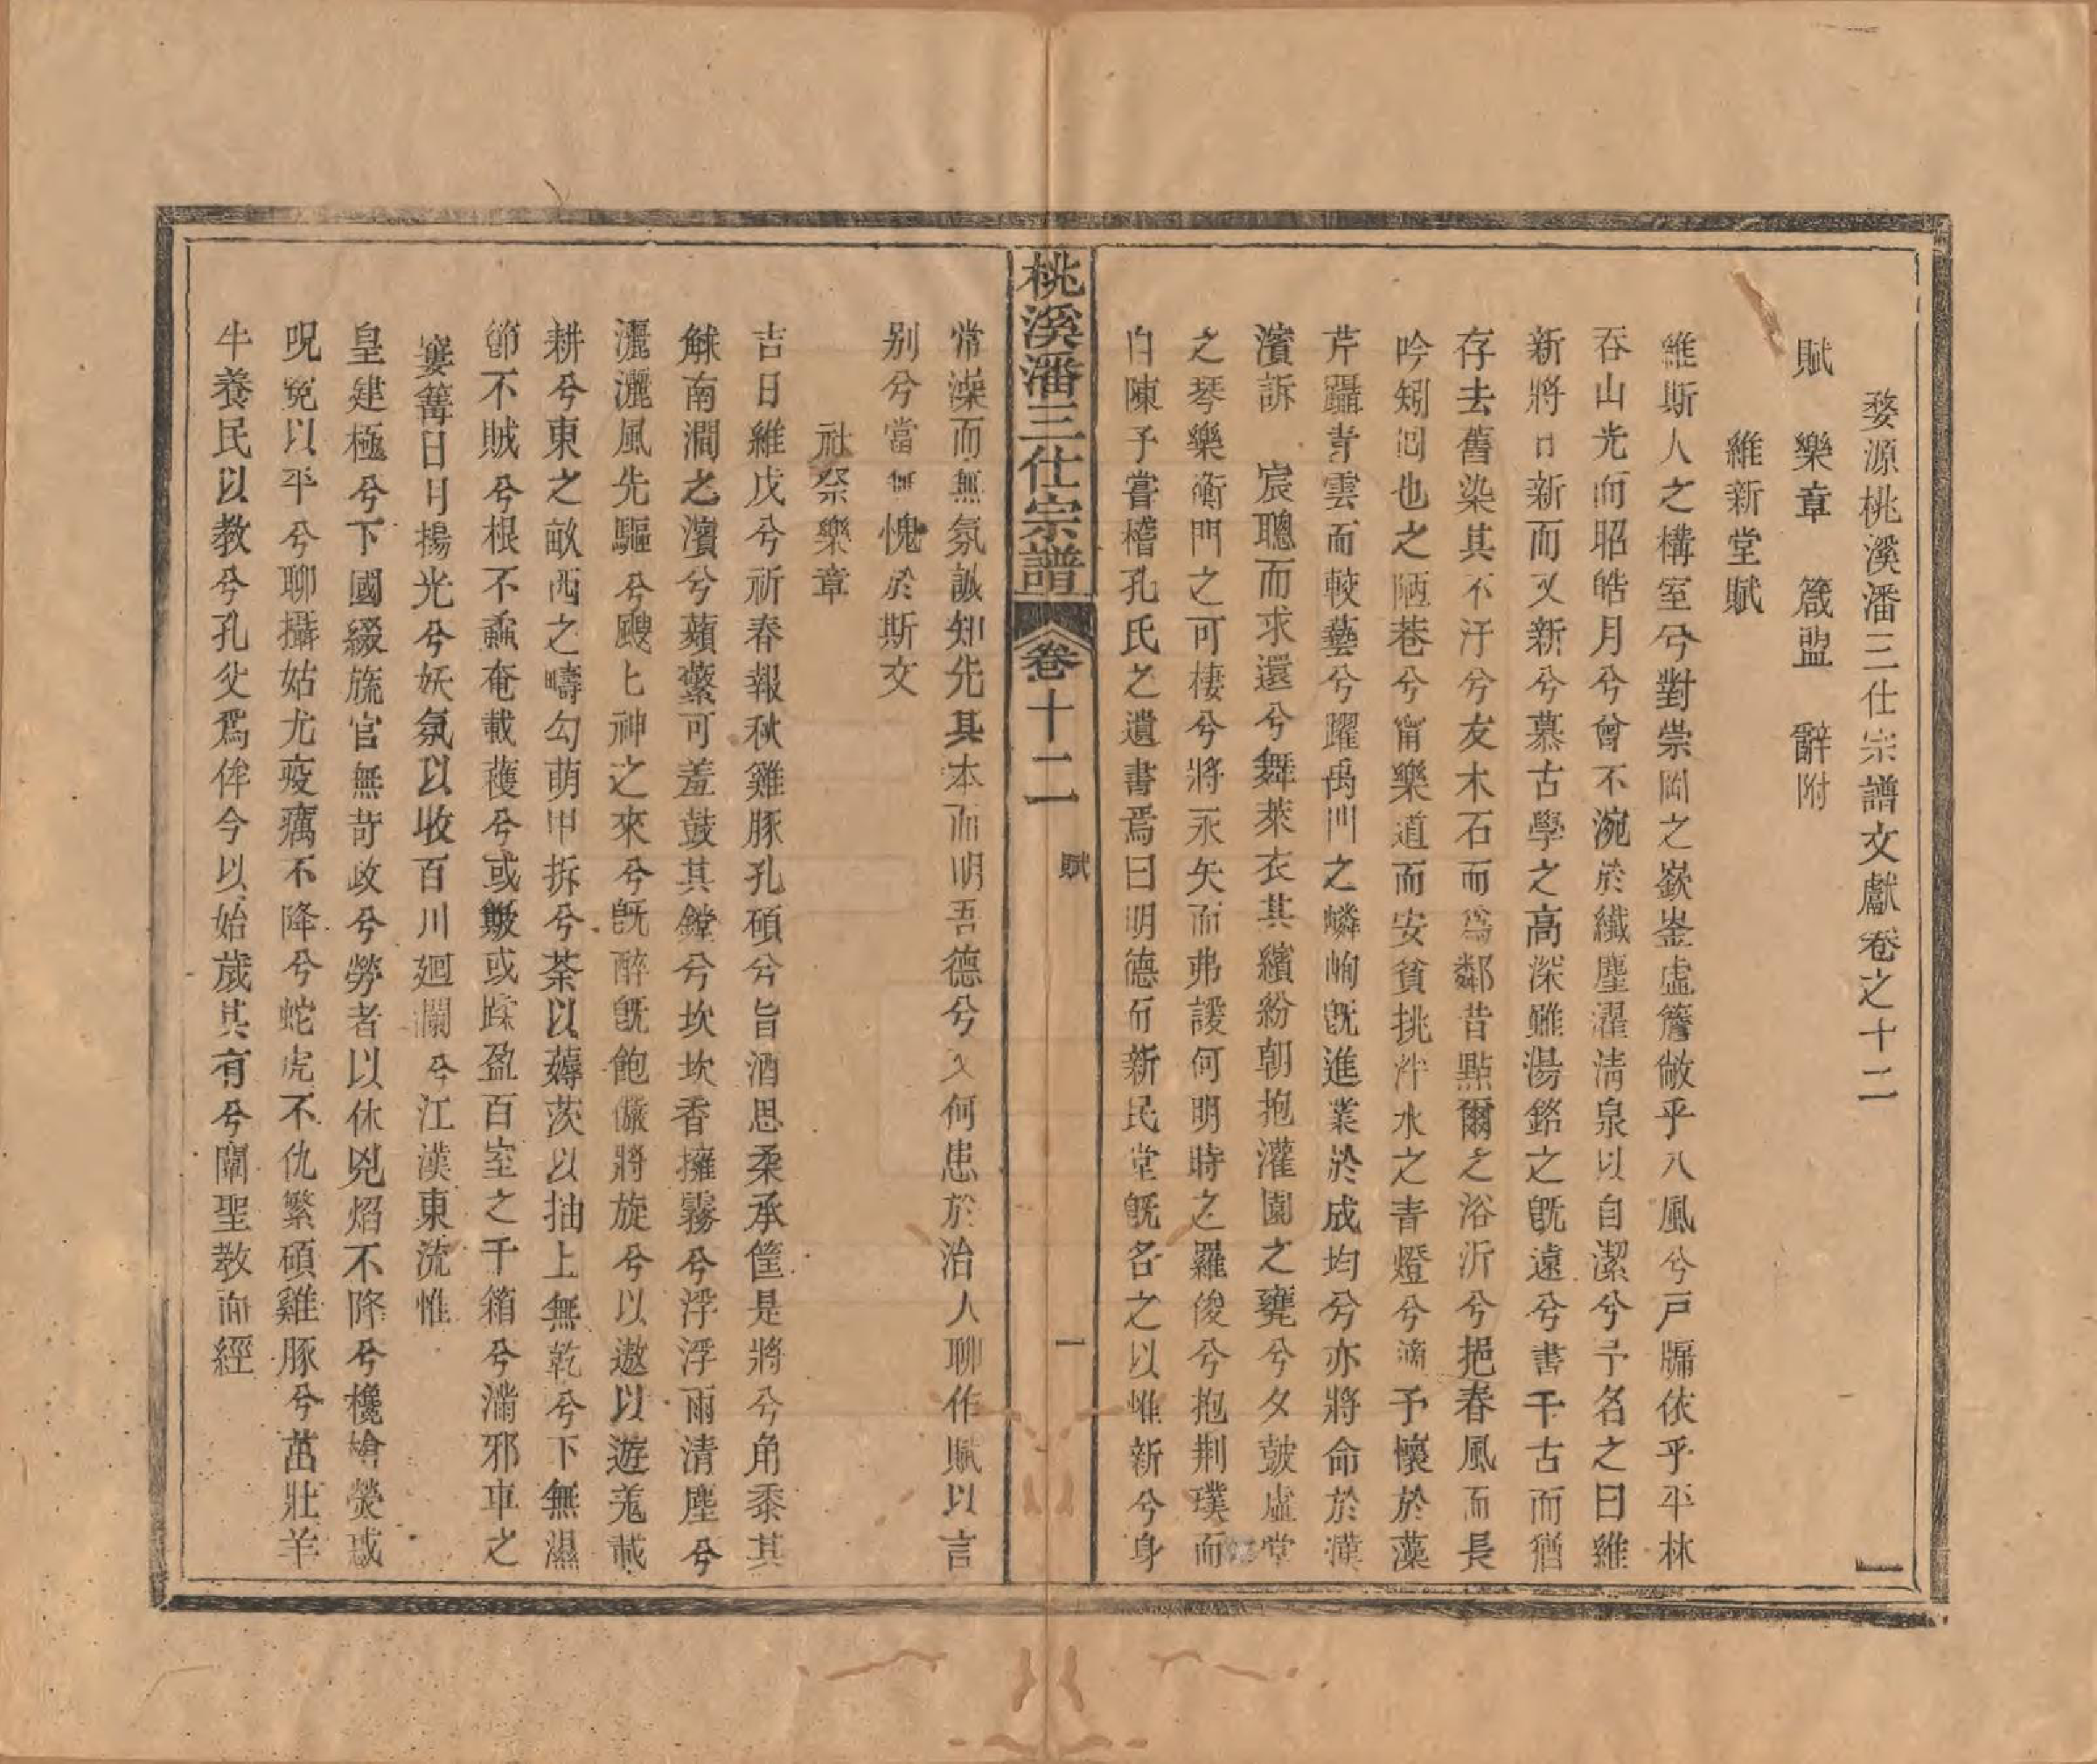 婺源桃溪潘三仕宗譜文獻卷之十二
賦　樂章　箴盟　辭附
維新堂賦
維斯人之構室兮對崇岡之嶔崟虛簷敞乎八風兮戸牖依乎平林
吞山光而昭皓月兮曾不涴於纖塵濯清泉以自潔兮予名之曰維
新將日新而又新兮慕古學之高深雖湯銘之旣遠兮書千古而猶
存去舊染其不汙兮友木石而爲鄰昔點爾之浴沂兮挹春風而長
吟矧囘也之陋巷兮甯樂道而安貧挑泮水之青燈兮滴予懷於藻
芹躡青雲而較藝兮躍禹門之嶙峋旣進業於成均兮亦將命於漢
濱訴　宸聰而求還兮舞萊衣其繽紛朝抱灌園之甕兮夕鼓虛堂
之琴樂衡門之可棲兮將永矢而弗諼何明時之羅俊兮抱荆璞而
自陳予嘗稽孔氏之遺書焉曰明德而新民堂旣名之以惟新兮身
桃溪潘三仕宗譜　卷十二　賦　一
常澡而無氛誠知先其本而明吾德兮又何患於治人聊作賦以言
别兮當無愧於斯文
社祭樂章
吉日維戊兮祈春報秋雞豚孔碩兮旨酒思柔承筐是將兮角黍其
觩南澗之濱兮蘋蘩可羞鼓其鏜兮坎坎香擁霧兮浮浮雨清塵兮
灑灑風先驅兮颼匕神之來兮旣醉旣飽儼將旋兮以遨以遊羌載
耕兮東之畝西之疇勾萌甲拆兮荼以薅茨以抽上無乾兮下無濕
節不賊兮根不蟊奄載穫兮或簸或蹂盈百室之千箱兮滿邪車之
窶篝日月揚光兮妖氛以收百川廻瀾兮江漢東流惟
皇建極兮下國綴旒官無苛政兮勞者以休兇熖不降兮欃槍熒惑
呪冤以平兮聊攝姑尤疫癘不降兮蛇虎不仇繁碩雞豚兮茁壯羊
牛養民以教兮孔父爲侔今以始歲其有兮闡聖教而經